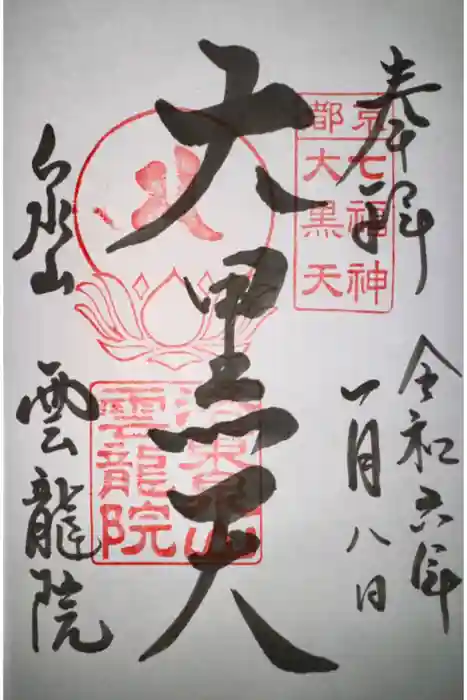 奉拝
令和六年
一月八日
京都
七福神
大黒天
大黒天
泉山
雲龍院
雲龍院